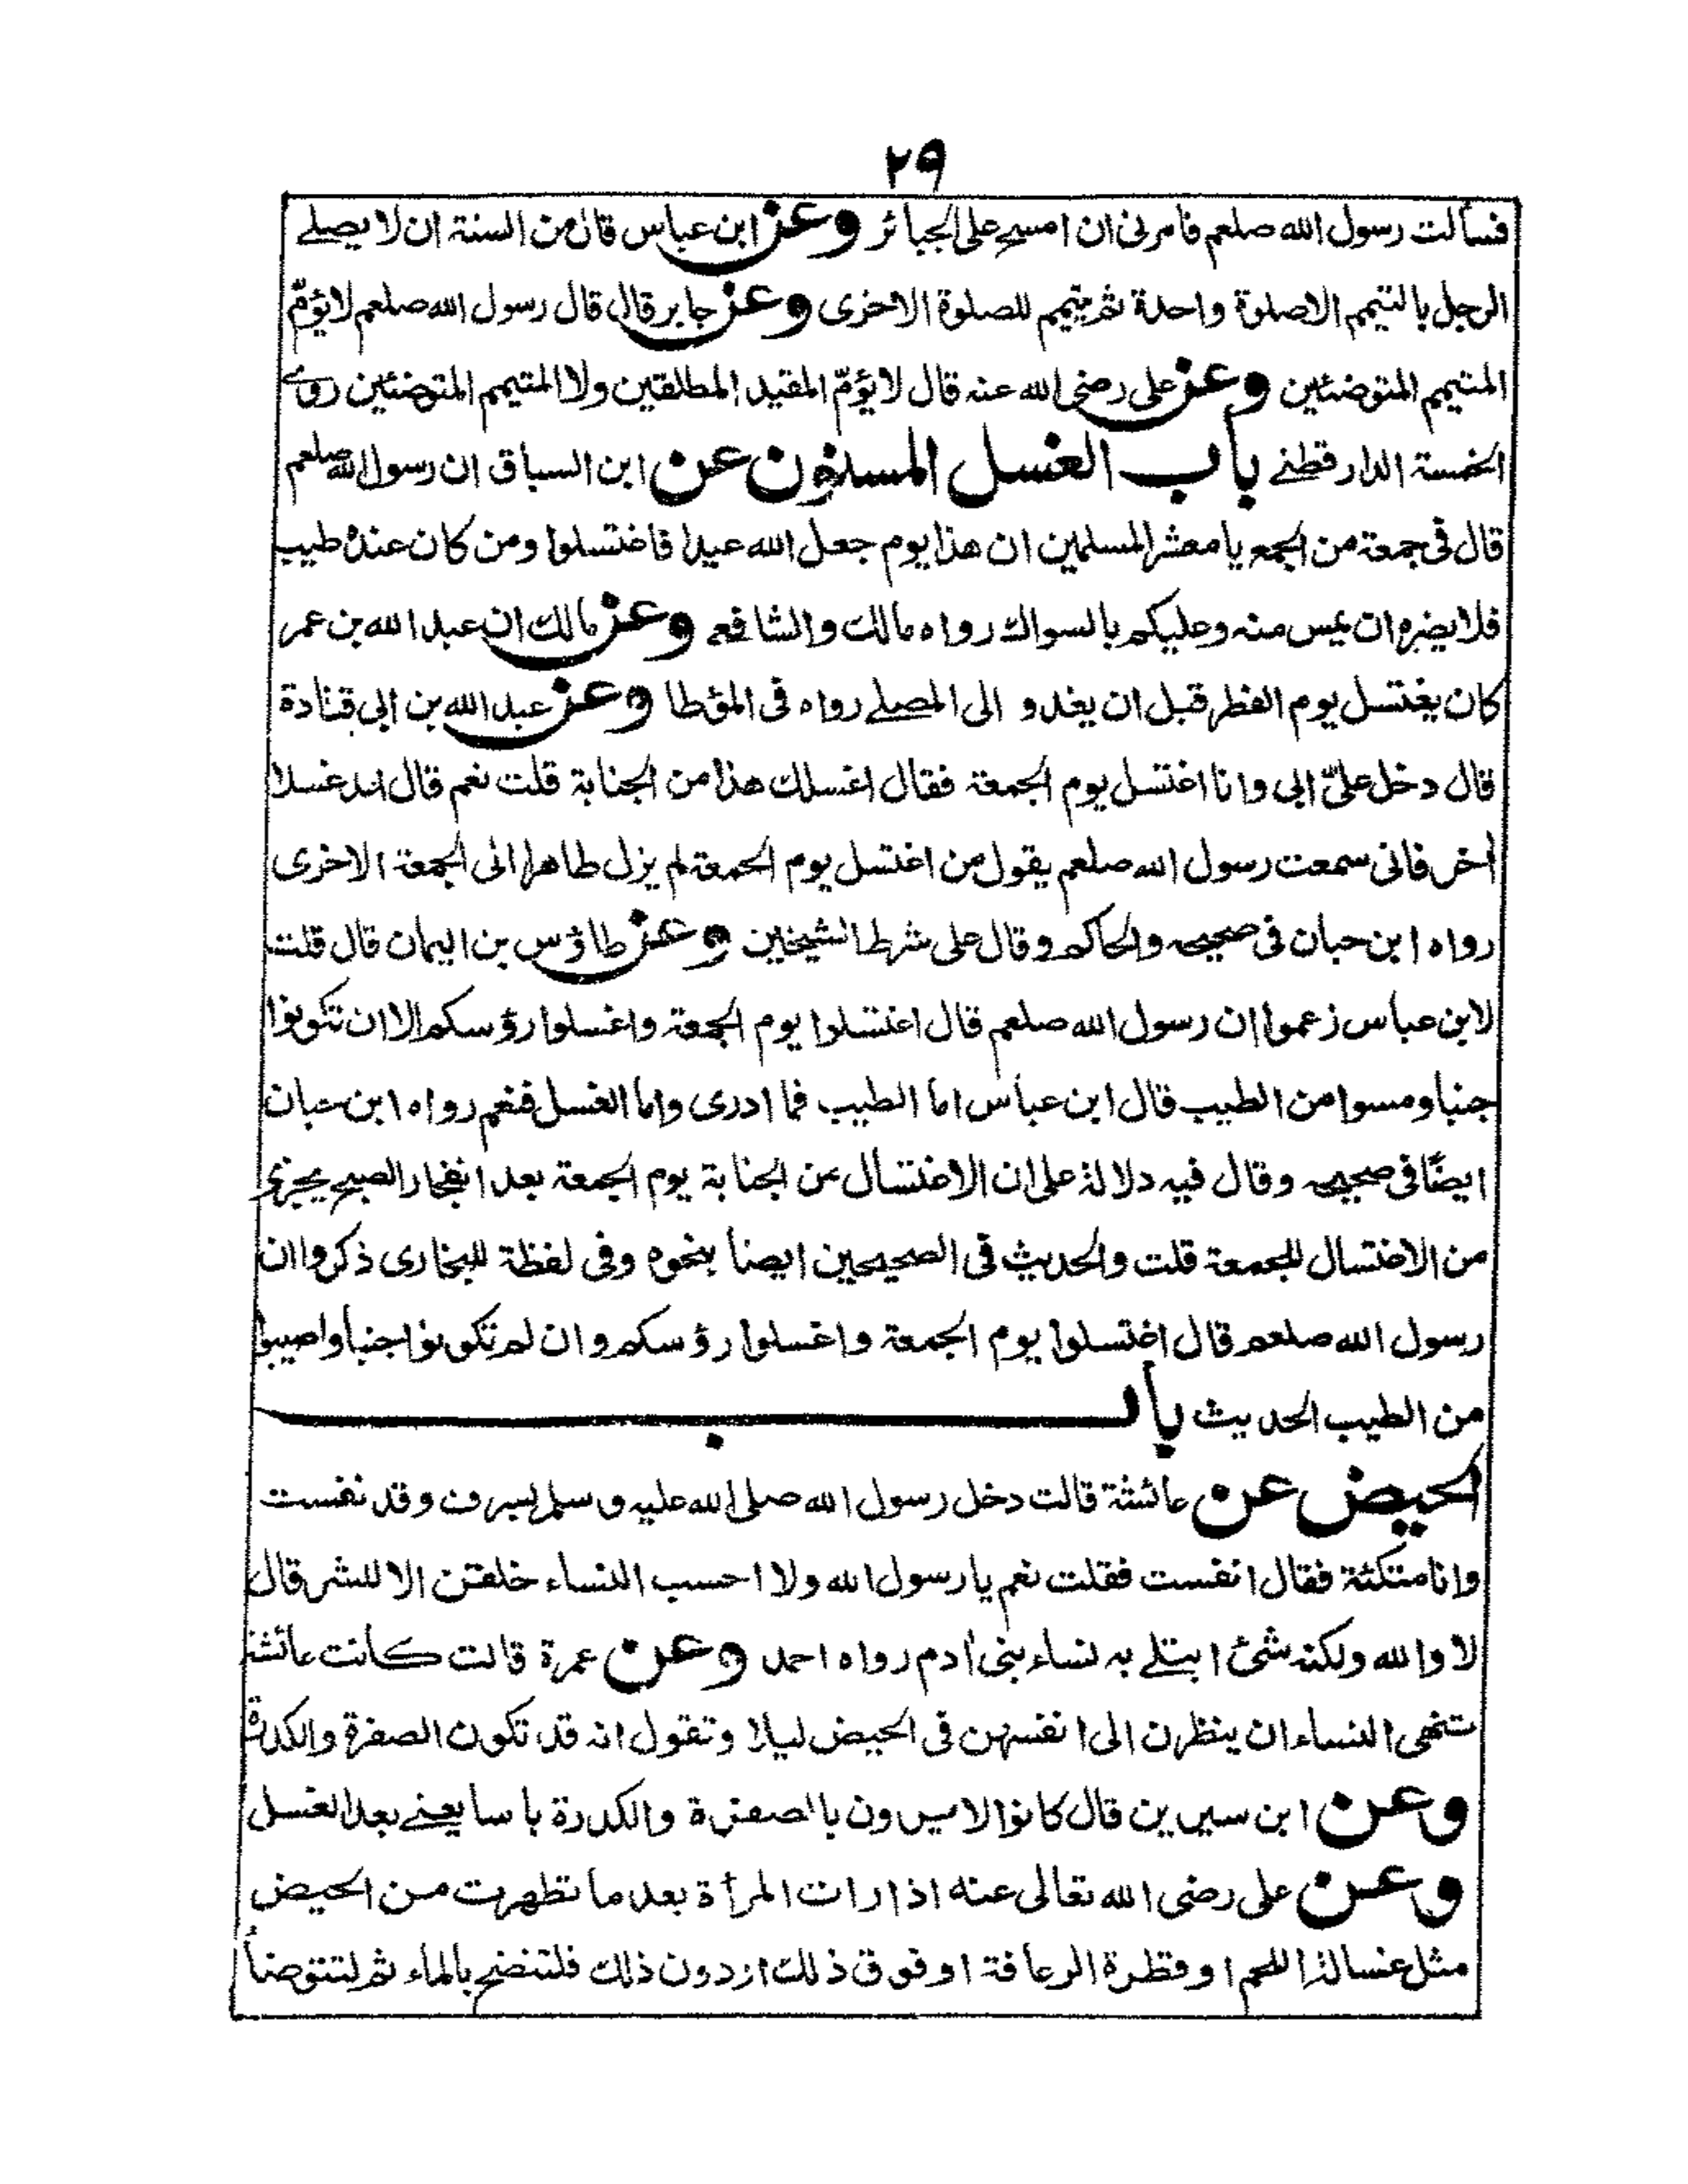 ٢٩
فسألت رسول الله صلعم فامرنى ان امسح على الجبائر وعن ابن عباس قال من السنة ان لا يصلے
الرجل بالتيمم الا صلوة واحدة ثم يتيمم للصلوة الاخرى وعن جابر قال قال رسول الله صلعم لا يؤمّ
المتيمم المتوضئين وعن على رضى الله عنه قال لا يؤمّ المقيد المطلقين ولا المتيمم المتوضئين روى
الخمسة الدار قطنے باب الغسل المسنون عن ابن السباق ان رسول الله صلعم
قال فى جمعة من الجمع يا معشر المسلمين ان هذا يوم جعل الله عيدا فاغتسلوا ومن كان عنده طيب
فلا يضره ان يمس منه وعليكم بالسواك رواه مالك والشافعے وعن مالك ان عبد الله بن عمر
كان يغتسل يوم الفطر قبل ان يغدو الى المصلے رواه فى المؤطا وعن عبد الله بن ابى قتادة
قال دخل علىّ ابى وانا اغتسل يوم الجمعة فقال اغسلك هذا من الجنابة قلت نعم قال اعد غسلا
اخر فانى سمعت رسول الله صلعم يقول من اغتسل يوم الجمعة لم يزل طاهرا الى الجمعة الاخرى
رواه ابن حبان فى صحيحه والحاكم وقال على شرط الشيخين وعن طاؤس بن اليمان قال قلت
لابن عباس زعموا ان رسول الله صلعم قال اغتسلوا يوم الجمعة واغسلوا رؤسكم الا ان تكونوا
جنبا ومسوا من الطيب قال ابن عباس اما الطيب فما ادرى واما الغسل فنعم رواه ابن حبان
ايضًا فى صحيحه وقال فيه دلالة على ان الاغتسال من الجنابة يوم الجمعة بعد انفجار الصبح يجزى
من الاغتسال للجمعة قلت والحديث فى الصحيحين ايضا بنحوه وفى لفظة للبخارى ذكروا ان
رسول الله صلعم قال اغتسلوا يوم الجمعة واغسلوا رؤسكم وان لم تكونوا جنبا واصيبوا
من الطيب الحديث باب
الحيض عن عائشة قالت دخل رسول الله صلى الله عليه وسلم بسرف وقد نفست
وانا متكئة فقال انفست فقلت نعم يا رسول الله ولا احسب النساء خلقن الا للشر قال
لا والله ولكنه شئ ابتلے به نساء بنى أدم رواه احمد وعن عمرة قالت كانت عائشة
تنهى النساء ان ينظرن الى انفسهن فى الحيض ليلا وتقول انه قد تكون الصفرة والكدرة
وعن ابن سيرين قال كانوا لا يرون بالصفرة والكدرة باسا يعنے بعد الغسل
وعن على رضى الله تعالى عنه اذا رات المرأة بعد ما تطهرت من الحيض
مثل غسالة اللحم او قطرة الرعافة او فوق ذلك او دون ذلك فلتنضح بالماء ثم لتتوضأ